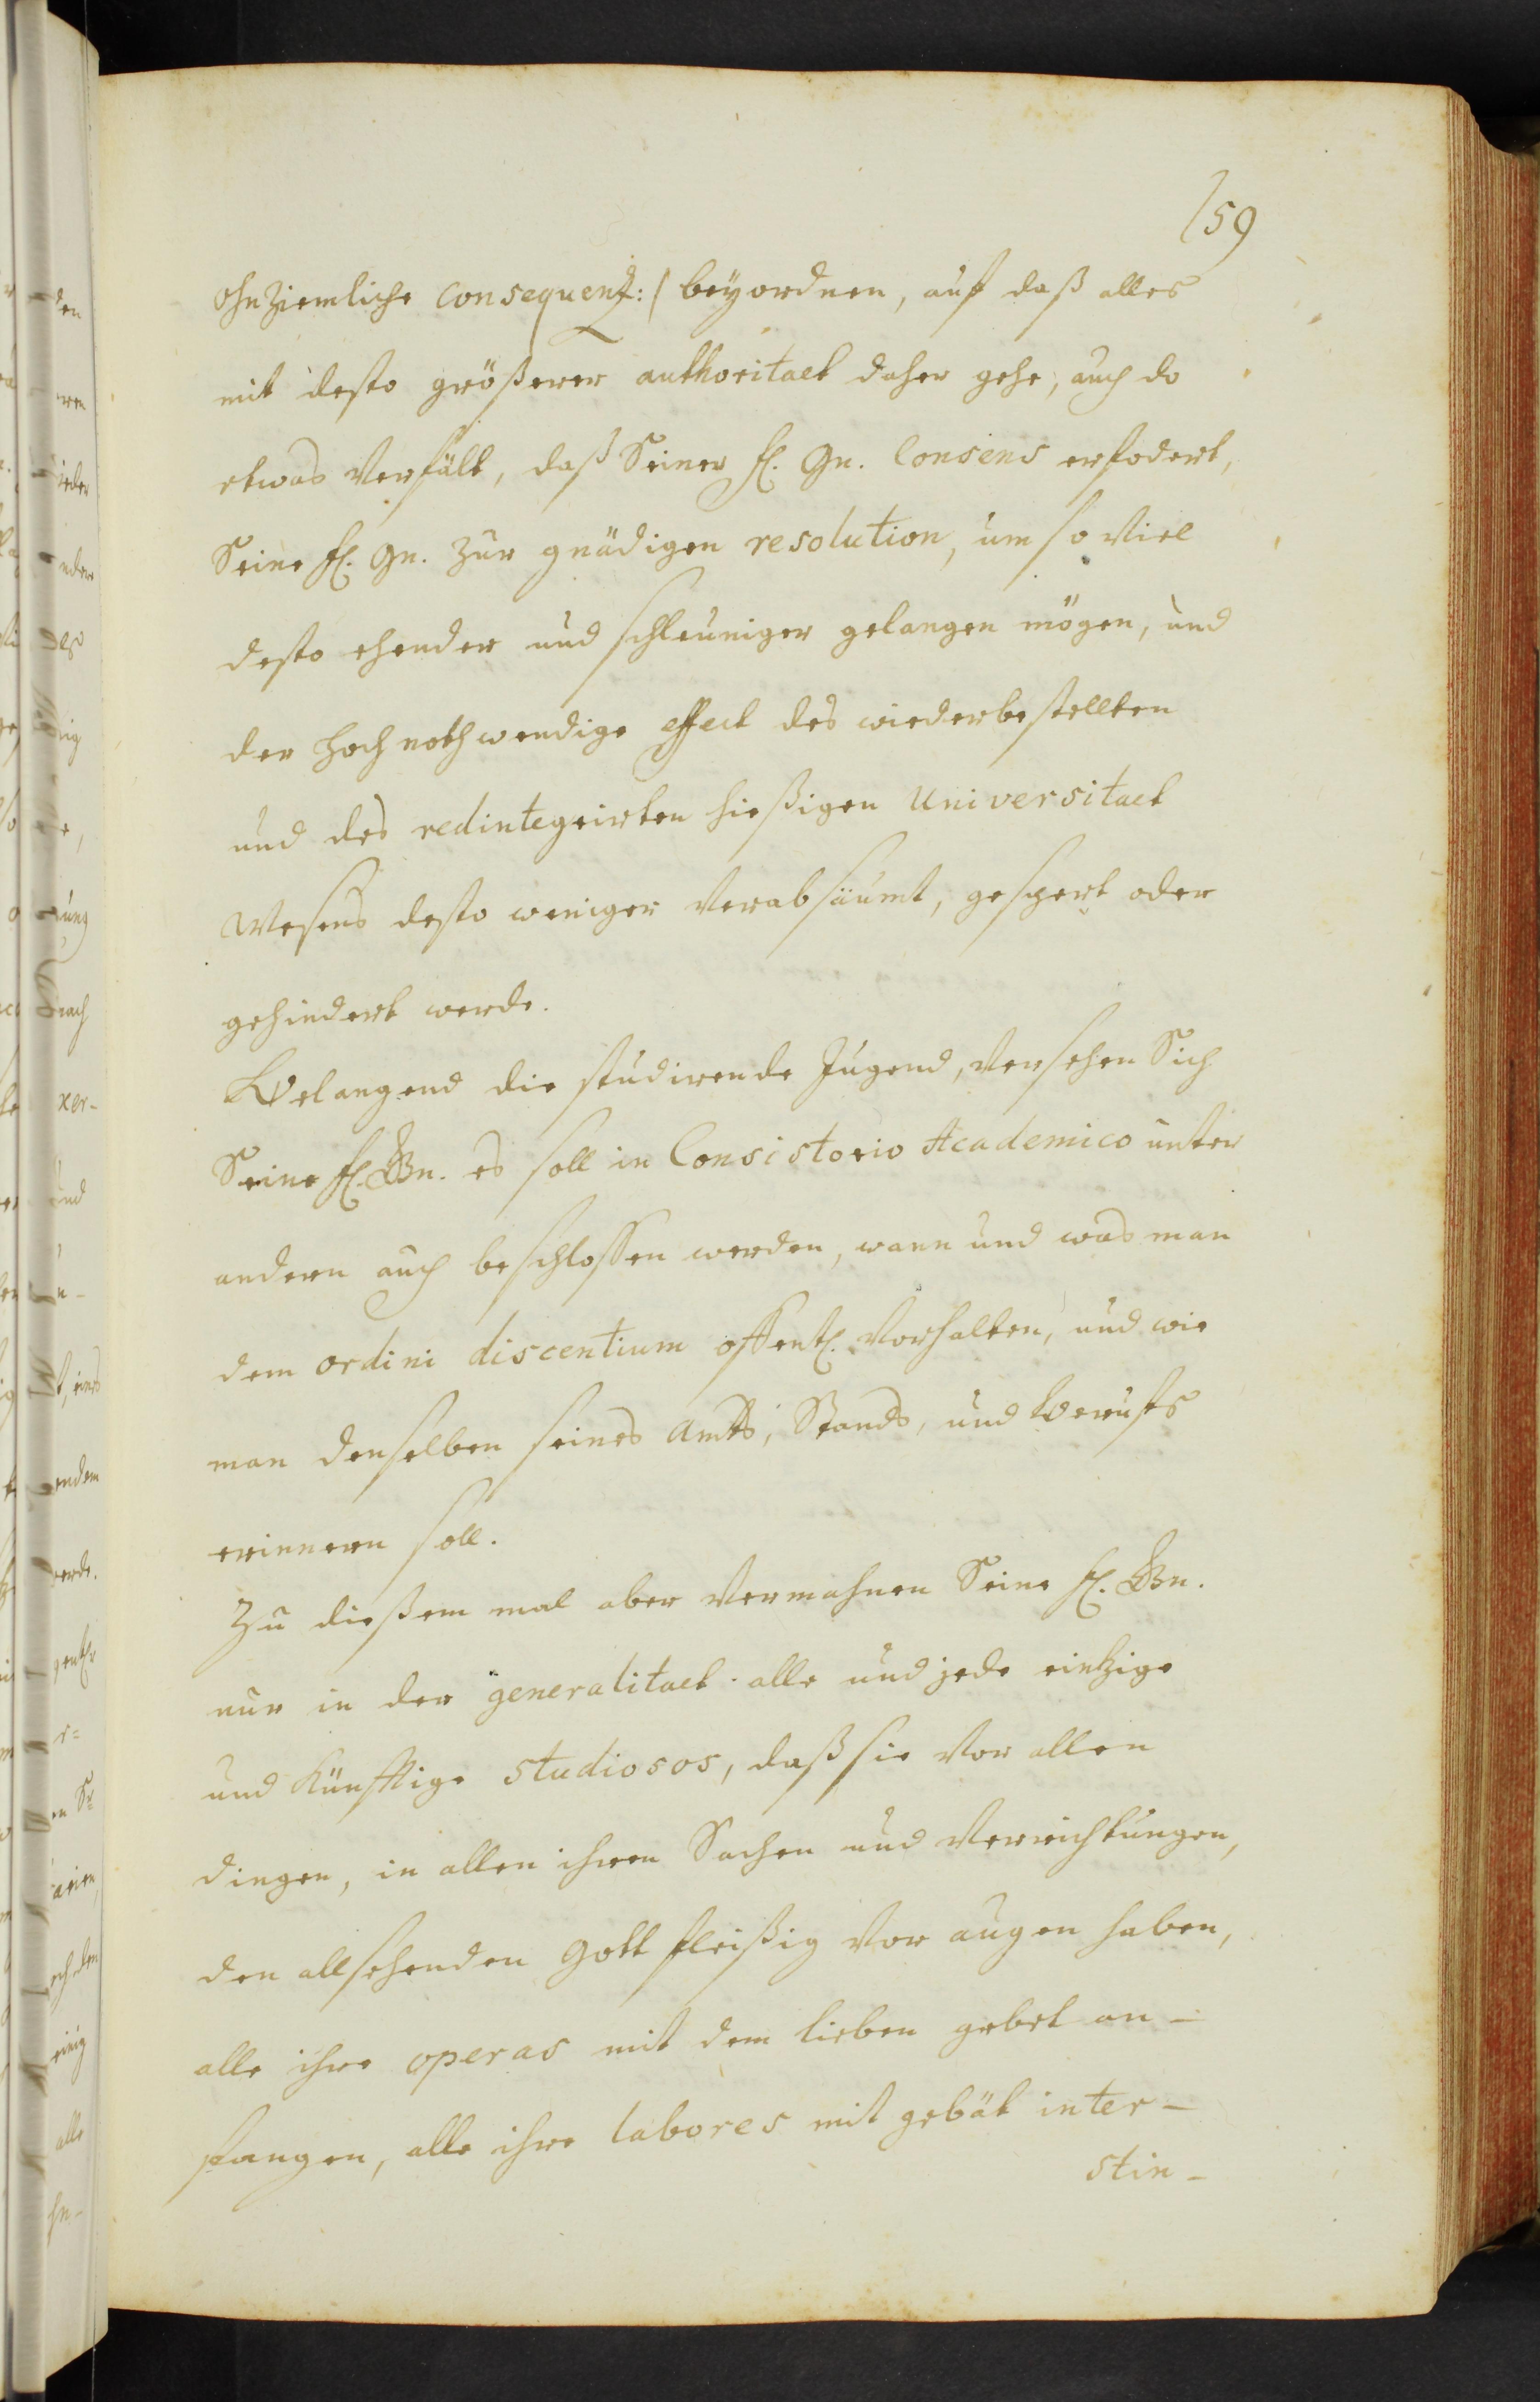 159
ohnziemliche consequenz:/ beyordnen, auf daß alles
mit desto größerer authoritaet daher gehe, auch do
etwas Verfält, daß Seiner fl. Gn. Consens erfodert,
Seine fl. Gn. zur gnädigen resolution, um so Viel
desto ehender und schleuniger gelangen mögen, und
der hochnothwendige effect des wiederbestellten
und des redintegrirten hießigen Universitaet
Wesens desto weniger Verabsäumt, gespert oder
gehindert werde.
Belangend die studirende Jugend, Versehen Sich
Seine fl. Gn. es soll in Consistorio Academico unter
andern auch beschlossen werden, wann und was man
dem ordini discentium offentl. Vorhalten, und wie
man denselben seines Amts, Stands, und Berufs
erinnern soll.
Zu dießem mal aber Vermahnen Seine fl. Gn.
nur in der generalitaet alle und jede eintzige
und Künfftige studiosos, daß sie Vor allen
dingen, in allen ihren Sachen und Verrichtungen,
den allsehenden Gott fleißig Vor augen haben,
alle ihre operas mit dem lieben gebet an-
fangen, alle ihre labores mit gebät inter-
stin-